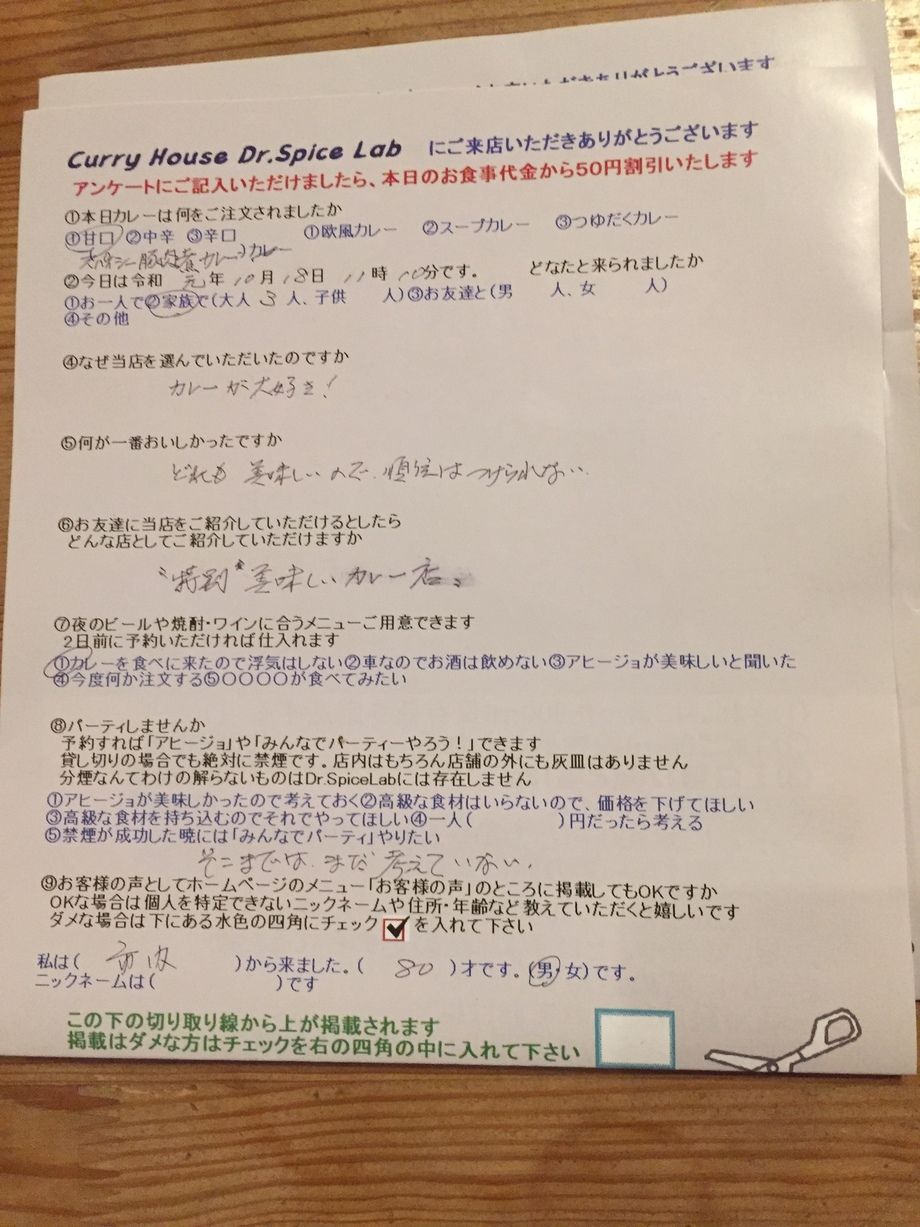 ただきありがとうございます
Curry House Dr.Spice Lab にご来店いただきありがとうございます
アンケートにご記入いただけましたら、本日のお食事代金から50円割引いたします
①本日カレーは何をご注文されましたか
①甘口 ②中辛 ③辛口 ①欧風カレー ②スープカレー ③つゆだくカレー
カレー
②今日は令和 元年 10月 18日 11時 10分です。 どなたと来られましたか
①お一人で②家族で(大人 3 人、子供 人)③お友達と(男 人、女 人)
④その他
④なぜ当店を選んでいただいたのですか
カレーが大好き!
⑤何が一番おいしかったですか
どれも 美味しいので、順位はつけられない.
⑥お友達に当店をご紹介していただけるとしたら
どんな店としてご紹介していただけますか
"特別" 美味しいカレー店。
⑦夜のビールや焼酎・ワインに合うメニューご用意できます
2日前に予約いただければ仕入れます
①カレーを食べに来たので浮気はしない②車なのでお酒は飲めない③アヒージョが美味しいと聞いた
④今度何か注文する⑤〇〇〇〇が食べてみたい
⑧パーティしませんか
予約すれば「アヒージョ」や「みんなでパーティーやろう!」できます
貸し切りの場合でも絶対に禁煙です。店内はもちろん店舗の外にも灰皿はありません
分煙なんてわけの解らないものはDr.SpiceLabには存在しません
①アヒージョが美味しかったので考えておく②高級な食材はいらないので、価格を下げてほしい
③高級な食材を持ち込むのでそれでやってほしい④一人( )円だったら考える
⑤禁煙が成功した暁には「みんなでパーティ」やりたい
そこまでは、まだ考えていない.
⑨お客様の声としてホームページのメニュー「お客様の声」のところに掲載してもOKですか
OKな場合は個人を特定できないニックネームや住所・年齢など教えていただくと嬉しいです
ダメな場合は下にある水色の四角にチェック を入れて下さい
私は( 市内 )から来ました。( 80 )才です。(男・女)です。
ニックネームは( )です
この下の切り取り線から上が掲載されます
掲載はダメな方はチェックを右の四角の中に入れて下さい